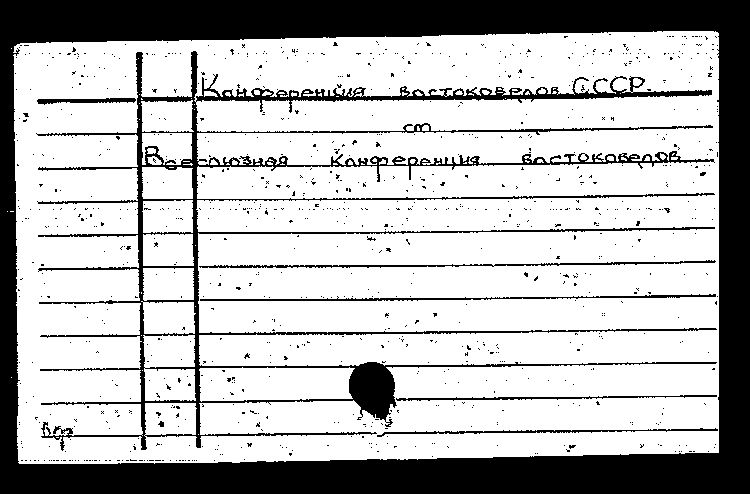 Конференция востоковедов СССР
см
Всесоюзная конференция востоковедов